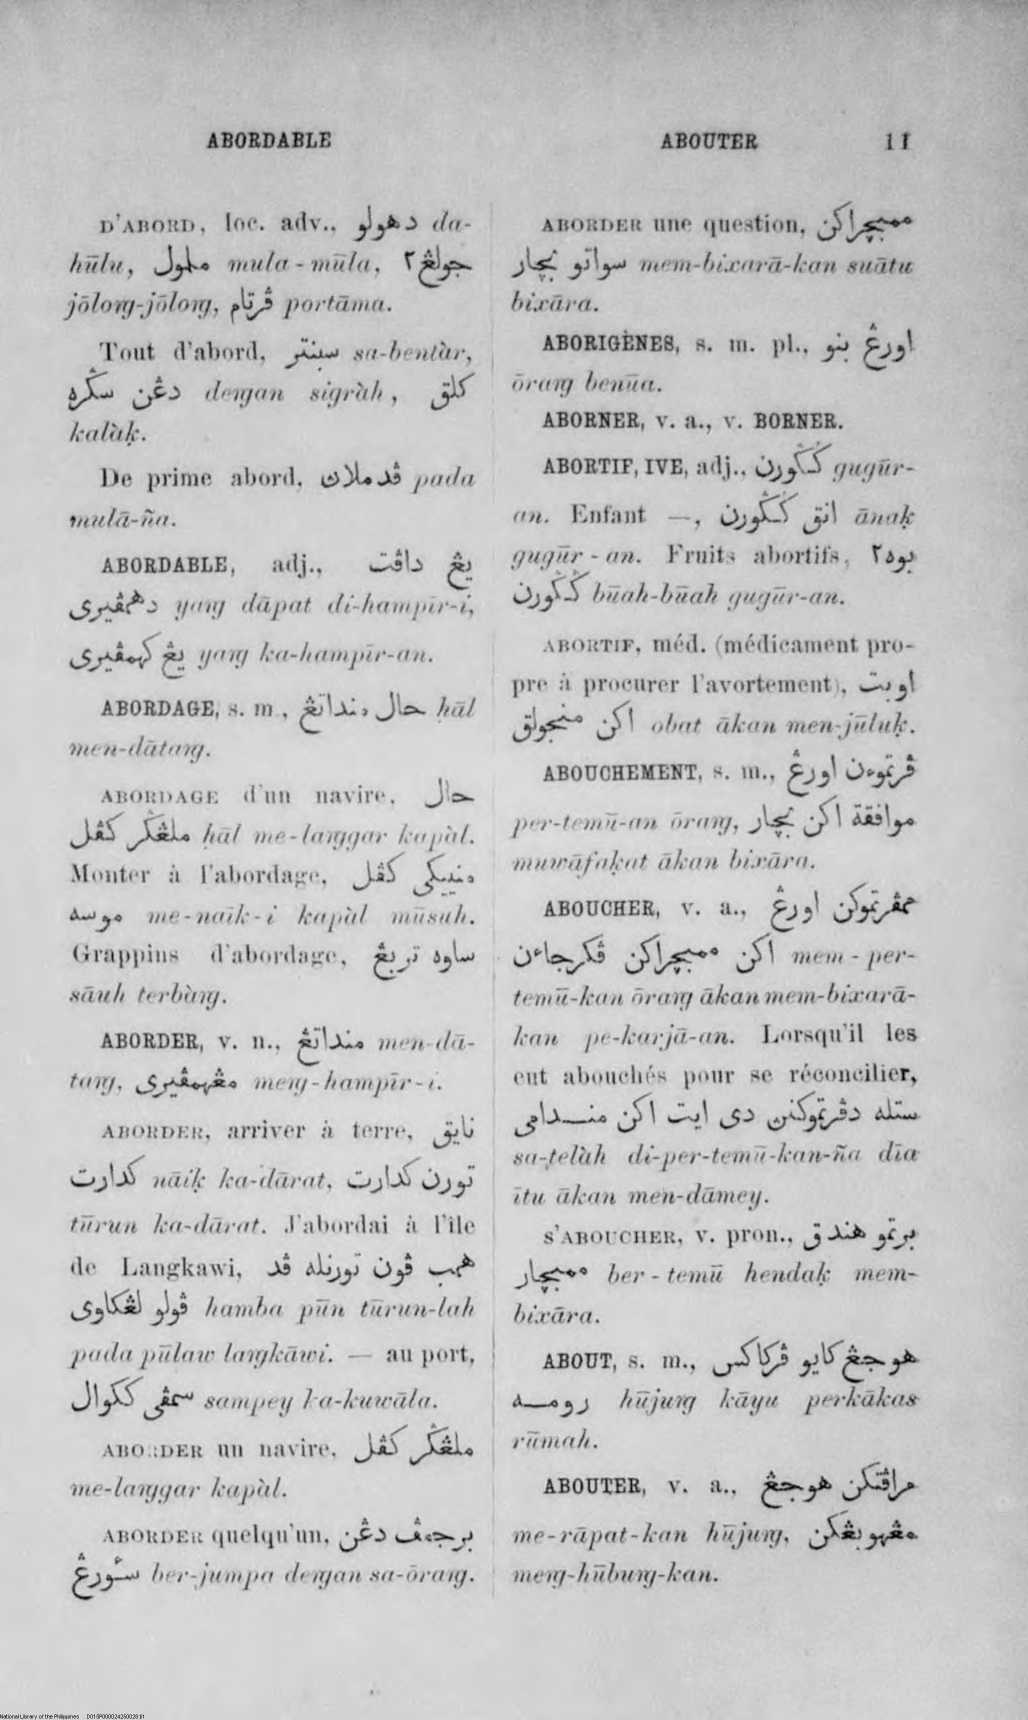 ABORDABLE
ABOUTER 11
D'ABORD, loc. adv., دهولو da-
hūlu, ملمول mula-mūla, جولڠ٢
jōloŋ-jōloŋ, ڤرتام portāma.
Tout d'abord, سبنتر sa-bentàr,
دڠن سݢره deŋan sigràh, كلق
kalàḳ.
De prime abord, ڤدملاڽ pada
mulā-ña.
ABORDABLE, adj., يڠ داڤت
دهمڤيرى yaŋ dāpat di-hampīr-i,
يڠ كهمڤيرى yaŋ ka-hampīr-an.
ABORDAGE, s. m., حال منداتڠ ḥāl
men-dātaŋ.
ABORDAGE d'un navire, حال
ملڠݢر كڤل ḥāl me-laŋgar kapàl.
Monter à l'abordage, منييكى كڤل
موسه me-naīk-i kapàl mūsuh.
Grappins d'abordage, ساوه تربڠ
sāuh terbàŋ.
ABORDER, v. n., منداتڠ men-dā-
taŋ, مڠهمڤيرى meŋ-hampīr-i.
ABORDER, arriver à terre, نايق
كدارت nāiḳ ka-dārat, تورن كدارت
tūrun ka-dārat. J'abordai à l'île
de Langkawi, همب ڤون تورنله ڤد
ڤولو لڠكاوى hamba pūn tūrun-lah
pada pūlaw laŋkāwi. — au port,
سمڤى ككوال sampey ka-kuwāla.
ABORDER un navire, ملڠݢر كڤل
me-laŋgar kapàl.
ABORDER quelqu'un, برجمڤ دڠن
سٔورڠ ber-jumpa deŋan sa-ōraŋ.
ABORDER une question, ممبچراكن
سواتو بچار mem-bixarā-kan suātu
bixāra.
ABORIGÈNES, s. m. pl., اورڠ بنو
ōraŋ benūa.
ABORNER, v. a., v. BORNER.
ABORTIF, IVE, adj., ݢݢورن gugūr-
an. Enfant —, انق ݢݢورن ānaḳ
gugūr-an. Fruits abortifs, بوه٢
ݢݢورن būah-būah gugūr-an.
ABORTIF, méd. (médicament pro-
pre à procurer l'avortement), اوبت
اكن منجولق obat ākan men-jūluḳ.
ABOUCHEMENT, s. m., ڤرتموءن اورڠ
per-temū-an ōraŋ, موافقة اكن بچار
muwāfaḳat ākan bixāra.
ABOUCHER, v. a., ممڤرتموكن اورڠ
اكن ممبچراكن ڤكرجاءن mem-per-
temū-kan ōraŋ ākan mem-bixarā-
kan pe-karjā-an. Lorsqu'il les
eut abouchés pour se réconcilier,
ستله دڤرتموكنڽ دى ايت اكن مندامى
sa-ṭelàh di-per-temū-kan-ña dīa
ītu ākan men-dāmey.
S'ABOUCHER, v. pron., برتمو هندق
ممبچار ber-temū hendaḳ mem-
bixāra.
ABOUT, s. m., هوجڠ كايو ڤركاكس
رومه hūjuŋ kāyu perkākas
rūmah.
ABOUTER, v. a., مراڤتكن هوجڠ
me-rāpat-kan hūjuŋ, مڠهوبڠكن
meŋ-hūbuŋ-kan.
National Library of the Philippines